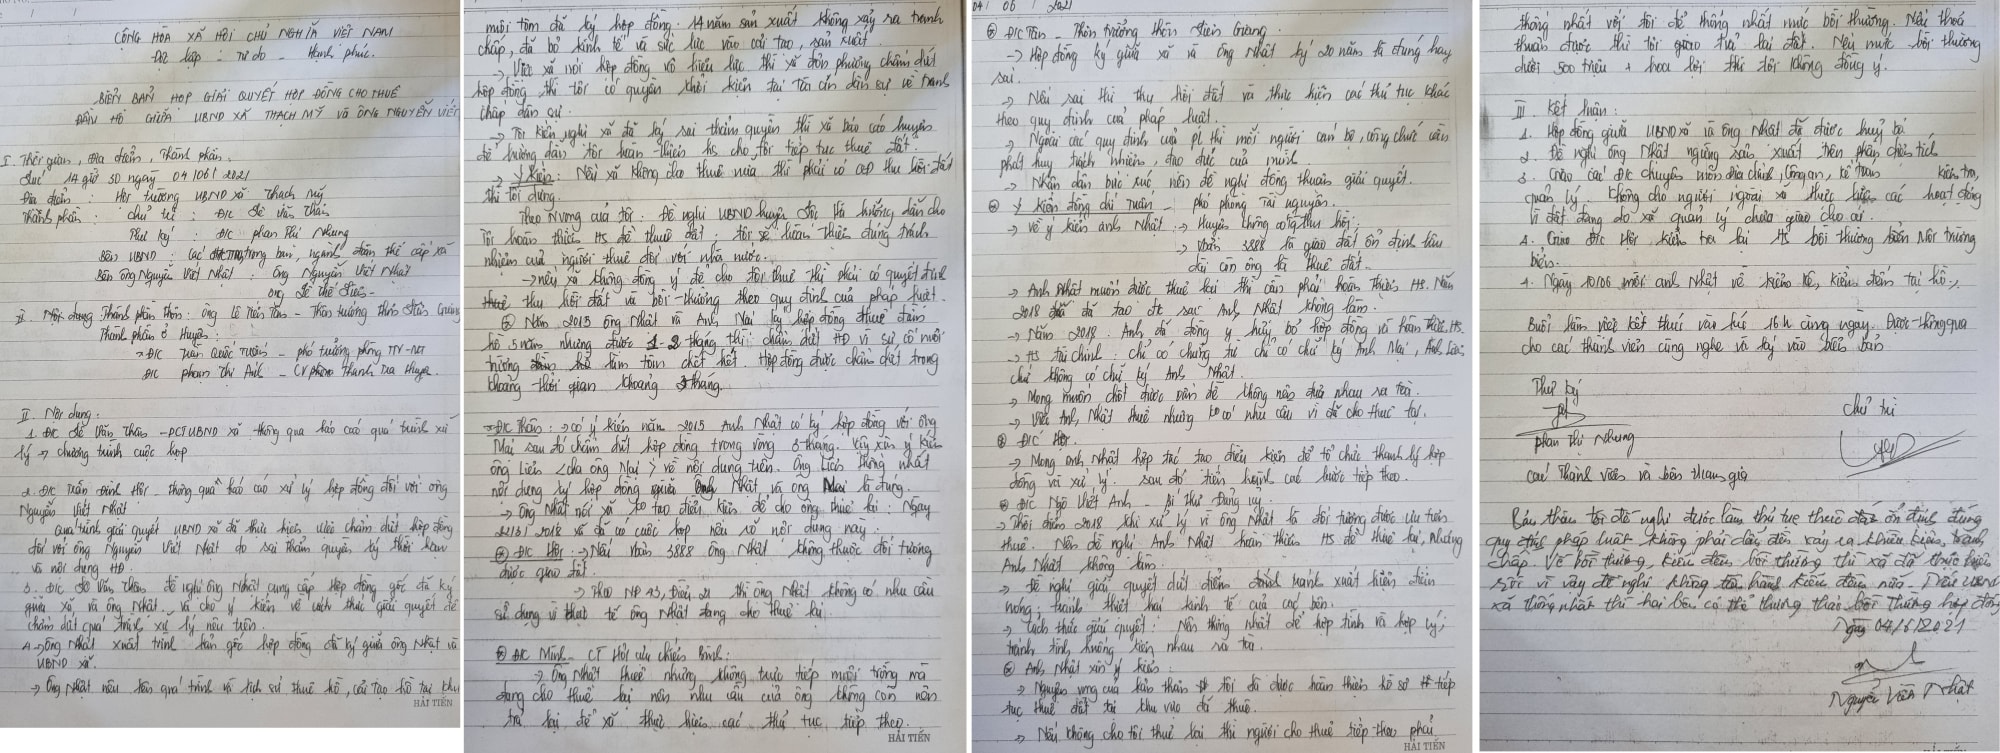 CỘNG HÒA XÃ HỘI CHỦ NGHĨA VIỆT NAM
Độc lập - Tự do - Hạnh phúc.
BIÊN BẢN HỌP GIẢI QUYẾT HỢP ĐỒNG CHO THUÊ
ĐẦM HỒ GIỮA UBND XÃ THẠCH MỸ VÀ ÔNG NGUYỄN VIẾT
I. Thời gian, Địa điểm, Thành phần.
Lúc 14 giờ 30 ngày 04/06/2021
Địa điểm: Hội trường UBND xã Thạch Mỹ
Thành phần: Chủ trì: Đ/C Lê Văn Thân
Thư ký: Đ/C Phan Thị Nhung
Bên UBND: Các trong ban, ngành đoàn thể cấp xã
Bên ông Nguyễn Viết Nhật: Ông Nguyễn Viết Nhật
Ông Lê Thế Liên
II. Nội dung Thành phần thôn: Ông Lê Tiến Tân - Thôn trưởng thôn Liên Giang
Thành phần ở Huyện:
→ Đ/C Trần Quốc Tuấn - phó trưởng phòng TN-MT
Đ/C Phạm Thị Anh - CV phòng Thanh Tra Huyện.
II Nội dung.
1. Đ/C Lê Văn Thân - PCT UBND xã thông qua báo cáo quá trình xử
lý → chương trình cuộc họp
2. Đ/C Trần Đình Hội - thông qua báo cáo xử lý hợp đồng đối với ông
Nguyễn Viết Nhật
Quá trình giải quyết UBND xã đã thực hiện việc chấm dứt hợp đồng
đối với ông Nguyễn Viết Nhật do sai thẩm quyền ký thời hạn
và nội dung HĐ.
3. Đ/C Lê Văn Thân đề nghị ông Nhật cung cấp hợp đồng gốc đã ký
giữa xã và ông Nhật và cho ý kiến về cách thức giải quyết để
chấm dứt quá trình xử lý nêu trên.
4 → Ông Nhật xuất trình bản gốc hợp đồng đã ký giữa ông Nhật và
UBND xã.
→ Ông Nhật nêu lên quá trình và lịch sử thuê hồ, cải tạo hồ tại khu
HẢI TIẾN
nuôi tôm đã ký hợp đồng. 14 năm sản xuất không xảy ra tranh
chấp, đã bỏ kinh tế và sức lực vào cải tạo, sản xuất.
→ Việc xã nói hợp đồng vô hiệu lực thì xã đơn phương chấm dứt
hợp đồng thì tôi có quyền khởi kiện tại Tòa án dân sự về tranh
chấp dân sự.
→ Tôi kiến nghị xã đã ký sai thẩm quyền thì xã báo cáo huyện
để hướng dẫn tôi hoàn thiện hs cho tôi tiếp tục thuê đất.
→ Ý kiến: Nếu xã không cho thuê nữa thì phải có QĐ thu hồi đất
thì tôi dừng.
Theo N.vọng của tôi: Đề nghị UBND huyện Lộc Hà hướng dẫn cho
tôi hoàn thiện HS để thuê đất: tôi sẽ hoàn thiện đúng trách
nhiệm của người thuê đối với nhà nước.
→ nếu xã không đồng ý để cho tôi thuê thì phải có quyết định
thuê thu hồi đất và bồi thường theo quy định của pháp luật.
⊛ Năm 2015 ông Nhật và Anh Nại ký hợp đồng thuê đầm
hồ 5 năm nhưng được 1-2 tháng thì chấm dứt HĐ vì sự cố môi
trường làm tôm chết hết. Hợp đồng được chấm dứt trong
khoảng thời gian khoảng 3 tháng.
→ Đ/C Thân: → có ý kiến năm 2015 Anh Nhật có ký hợp đồng với ông
Nại sau đó chấm dứt hợp đồng trong vòng 3 tháng. Vậy xin ý kiến
ông Liên <cha ông Nại> về nội dung trên. Ông Liên thống nhất
nội dung ký hợp đồng giữa ông Nhật và ông Nại là đúng.
→ Ông Nhật nói xã ko tạo điều kiện để cho ông thuê lại: Ngày
2018 xã đã có cuộc họp nêu rõ nội dung này.
⊛ Đ/C Hội: → Nếu 3888 ông Nhật không thuộc đối tượng
được giao đất.
→ Theo NĐ 43, Điều 21 thì ông Nhật không có nhu cầu
sử dụng vì thực tế ông Nhật đang cho thuê lại.
⊛ Đ/C Minh - CT Hội cựu chiến binh:
→ Ông Nhật thuê nhưng không trực tiếp nuôi trồng mà
đang cho thuê lại nên nhu cầu của ông không còn nên
trả lại để xã thực hiện các thủ tục tiếp theo.
HẢI TIẾN
04/06/2021
⊛ Đ/C Tân - Thôn trưởng thôn Liên Giang.
→ Hợp đồng ký giữa xã và ông Nhật ký 20 năm là đúng hay
sai.
→ Nếu sai thì thu hồi đất và thực hiện các thủ tục khác
theo quy định của pháp luật.
→ Ngoài các quy định của PL thì mỗi người cán bộ, công chức cần
phát huy trách nhiệm, đạo đức của mình.
→ Nhân dân bức xúc nên đề nghị đồng thuận giải quyết.
⊛ Ý kiến đồng chí Tuấn - phó phòng Tài nguyên.
→ Về ý kiến anh Nhật: → Huyện không thu hồi:
→ 3888 là giao đất ổn định lâu
dài còn ông là thuê đất.
→ Anh Nhật muốn được thuê lại thì cần phải hoàn thiện HS. Năm
2018 đã tạo đk sao Anh Nhật không làm.
→ Năm 2018. Anh đã đồng ý hủy bỏ hợp đồng và hoàn thiện HS.
→ HS tài chính: chỉ có chứng từ chỉ có chữ ký Anh Nại, Anh Liên
chứ không có chữ ký Anh Nhật.
→ Mong muốn chốt được vấn đề không nên đưa nhau ra tòa.
→ Việc Anh Nhật thuê nhưng ko có nhu cầu vì đã cho thuê lại.
⊛ Đ/C Hội.
→ Mong anh Nhật hợp tác tạo điều kiện để tổ chức thanh lý hợp
đồng và xử lý. sau đó tiến hành các bước tiếp theo.
⊛ Đ/C Ngô Viết Anh - Bí thư Đảng ủy.
→ Thời điểm 2018 khi xử lý vì ông Nhật là đối tượng được ưu tiên
thuê. Nên đề nghị Anh Nhật hoàn thiện HS để thuê lại, nhưng
Anh Nhật không làm.
→ Đề nghị giải quyết dứt điểm tránh xuất hiện điểm
nóng; tránh thiệt hại kinh tế của các bên.
→ Cách thức giải quyết: Nên thống nhất để hợp tình và hợp lý;
tránh tình huống kiện nhau ra tòa.
⊛ Anh Nhật xin ý kiến:
→ Nguyện vọng của bản thân tôi là được hoàn thiện hồ sơ tiếp
tục thuê đất tại khu vực đã thuê.
→ Nếu không cho tôi thuê lại thì người cho thuê tiếp theo phải
HẢI TIẾN
thống nhất với tôi để thống nhất mức bồi thường. Nếu thoả
thuận được thì tôi giao trả lại đất. Nếu mức bồi thường
dưới 500 triệu + hoa lợi thì tôi không đồng ý.
III Kết luận:
1. Hợp đồng giữa UBND xã và ông Nhật đã được huỷ bỏ
2. Đề nghị ông Nhật ngừng sản xuất trên phần diện tích
3. Giao các Đ/C chuyên môn Địa chính, Công an, kế toán kiểm tra,
quản lý không cho người ngoài xã thực hiện các hoạt động
vì đất đang do xã quản lý chưa giao cho ai.
4. Giao Đ/C Hội, kiểm tra lại HS bồi thường biển Môi trường
biển.
5. Ngày 10/06 mời anh Nhật về kiểm kê, kiểm đếm tại hồ.
Buổi làm việc kết thúc vào lúc 16h cùng ngày. Được thông qua
cho các thành viên cùng nghe và ký vào biên bản.
Thư ký
Chủ trì
Phan Thị Nhung
Các thành viên và bên tham gia
Bản thân tôi đề nghị được làm thủ tục thuê đất ổn định đúng
quy pháp luật không phải dẫn đến xảy ra khiếu kiện, tranh
chấp. Về bồi thường, kiểm đếm bồi thường thì xã đã thực hiện
rồi vì vậy đề nghị không tiến hành kiểm đếm nữa. Trên UBND
xã thống nhất thì hai bên có thể thương thảo bồi thường hợp đồng
Ngày 04/6/2021
Nguyễn Viết Nhật